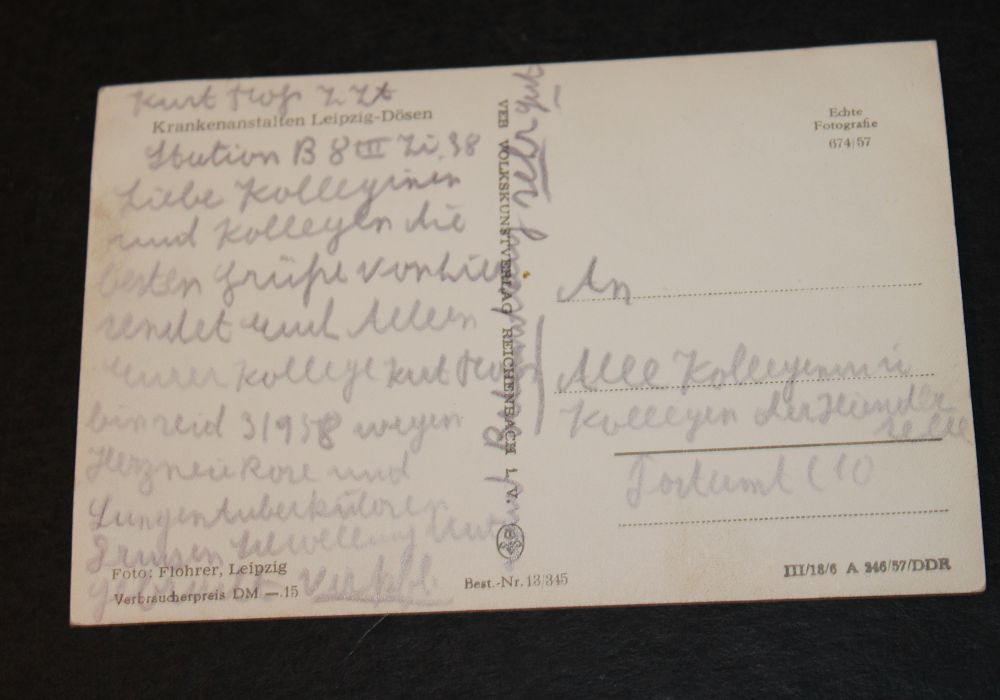 Kurt z. Zt
Krankenanstalten Leipzig-Dösen
Station B 8 III Zi. 38
Liebe Kolleginen
und Kollegen die
besten Grüße von hier
sendet euch Allen
eurer kollege kurt
bin seid 3/1958 wegen
Herzneurose und
Lungentuberkulose
Foto: Flohrer, Leipzig
Verbraucherpreis DM —.15
Best.-Nr. 13/345
VEB VOLKSKUNSTVERLAG REICHENBACH i. V.
sehr gut
Echte
Fotografie
674/57
An
Alle Kollegenin u
Kollegen der
Postamt C 10
III/18/6 A 246/57/DDR